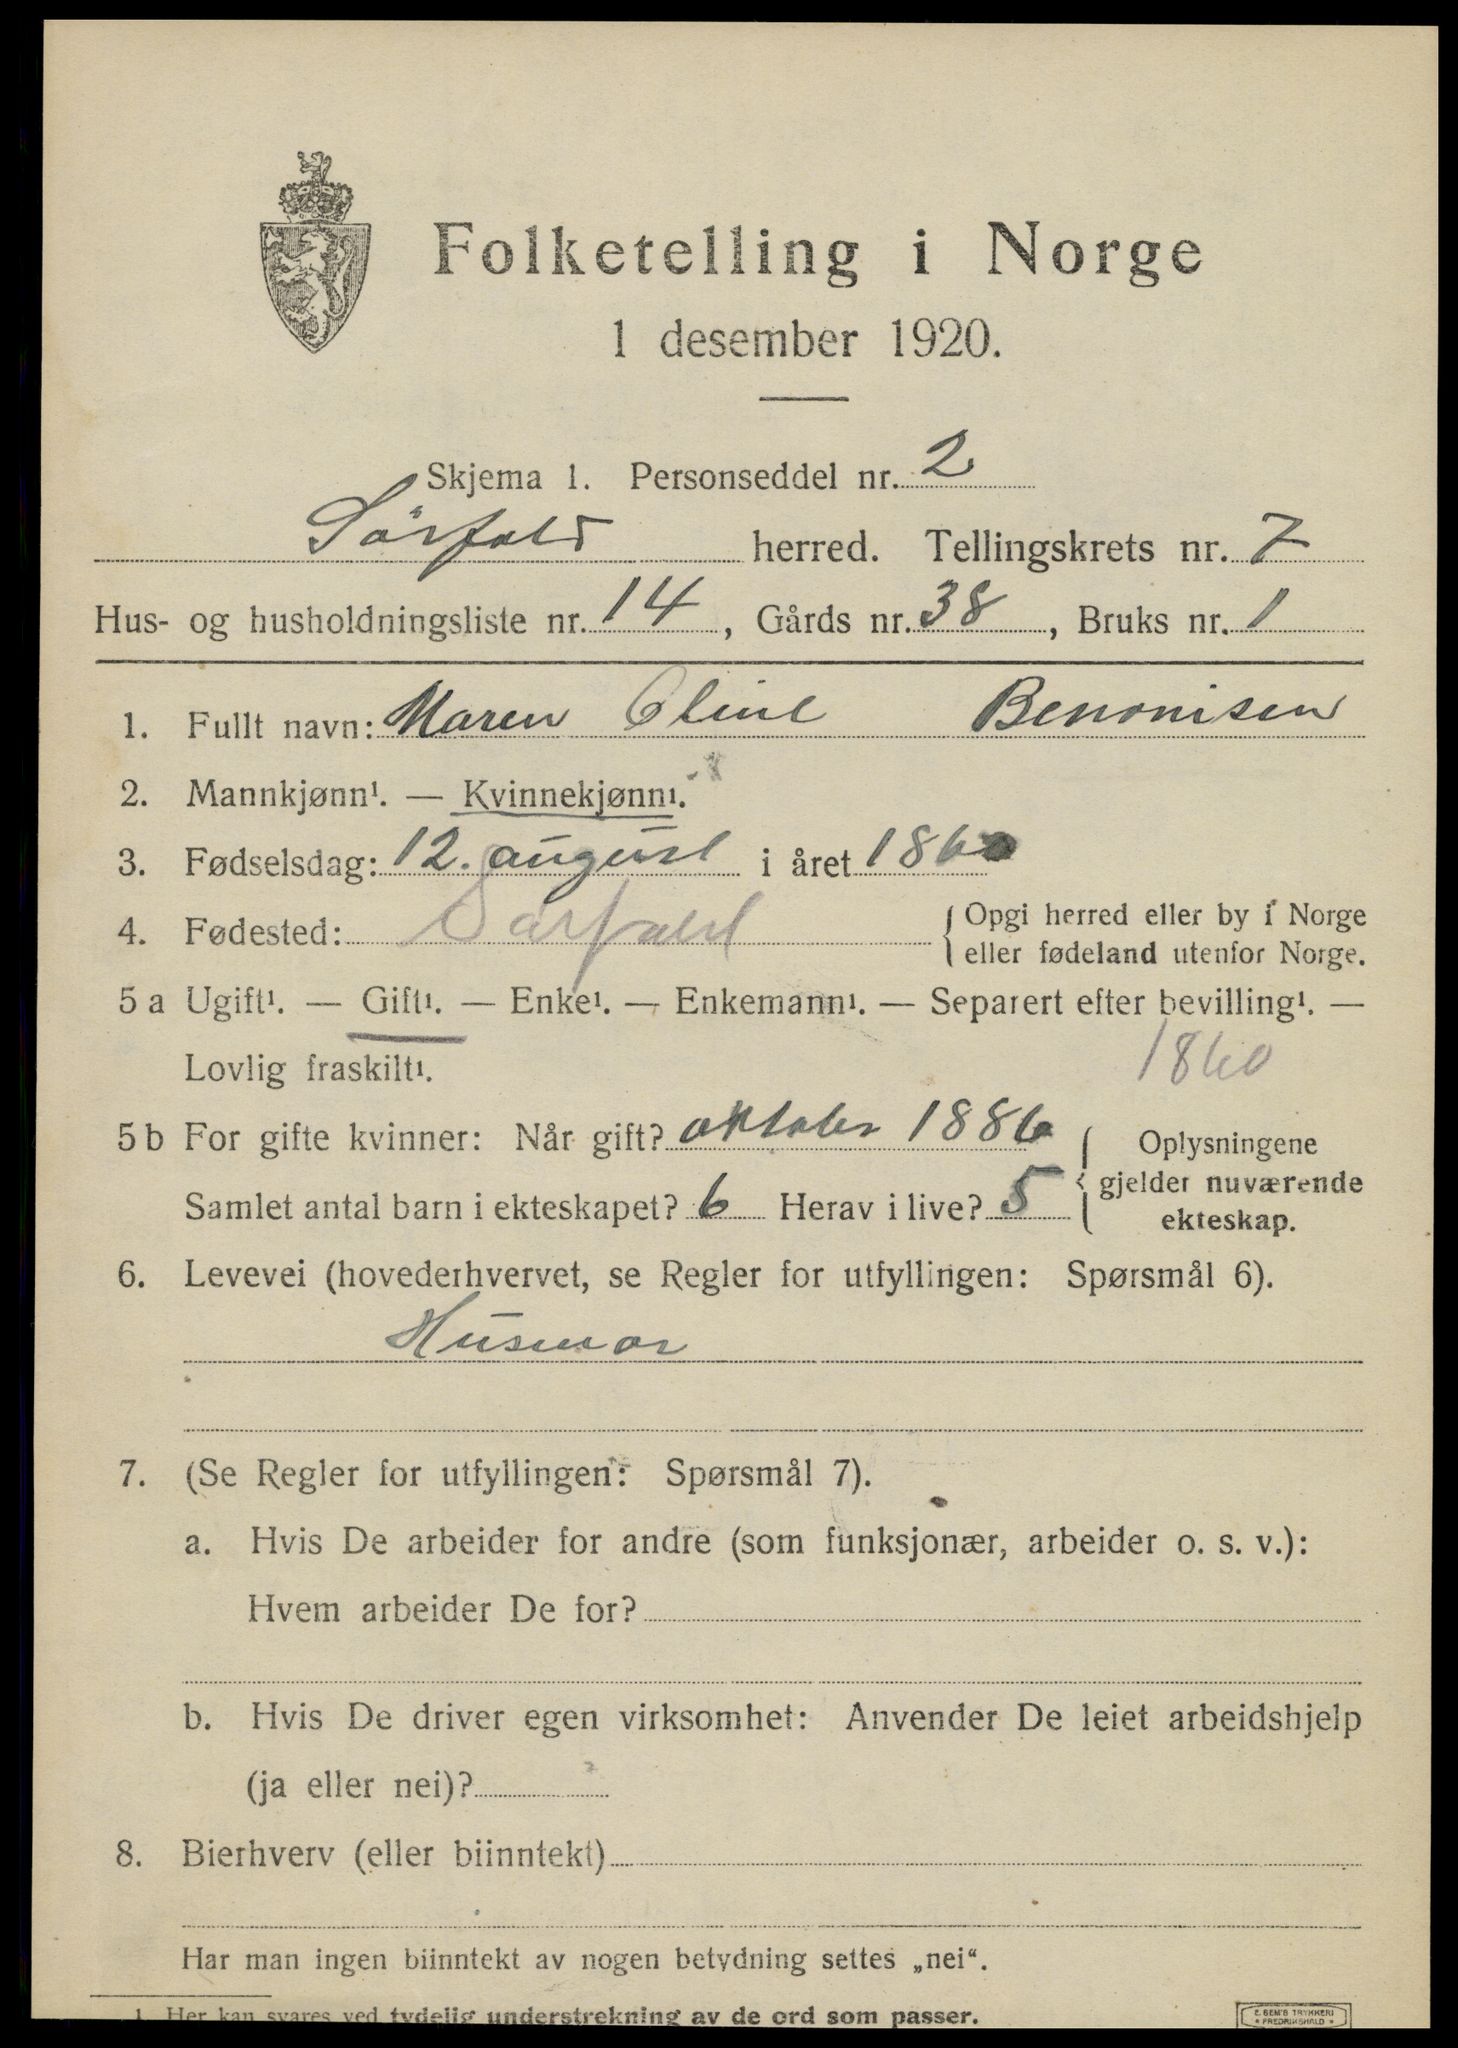 Folketelling i Norge
1 desember 1920.
Skjema 1. Personseddel nr. 2
Sörfold herred. Tellingskrets nr. 7
Hus- og husholdningsliste nr. 14, Gårds nr. 38, Bruks nr. 1
1. Fullt navn: Maren Oline Benonisen
2. Mannkjønn¹. — Kvinnekjønn¹.
3. Fødselsdag: 12. august i året 1860
4. Fødested: Sørfold {Opgi herred eller by i Norge
eller fødeland utenfor Norge.
5 a Ugift¹. — Gift¹. — Enke¹. — Enkemann¹. — Separert efter bevilling¹. —
Lovlig fraskilt¹. 1860
5 b For gifte kvinner: Når gift? oktober 1886 { Oplysningene
gjelder nuværende
ekteskap.
Samlet antal barn i ekteskapet? 6 Herav i live? 5
6. Levevei (hovederhvervet, se Regler for utfyllingen: Spørsmål 6).
Husmor
7. (Se Regler for utfyllingen: Spørsmål 7).
a. Hvis De arbeider for andre (som funksjonær, arbeider o. s. v.):
Hvem arbeider De for?
b. Hvis De driver egen virksomhet: Anvender De leiet arbeidshjelp
(ja eller nei)?
8. Bierhverv (eller biinntekt)
Har man ingen biinntekt av nogen betydning settes „nei“.
1. Her kan svares ved tydelig understrekning av de ord som passer.
E. SEM'S TRYKKERI
* FREDRIKSHALD *